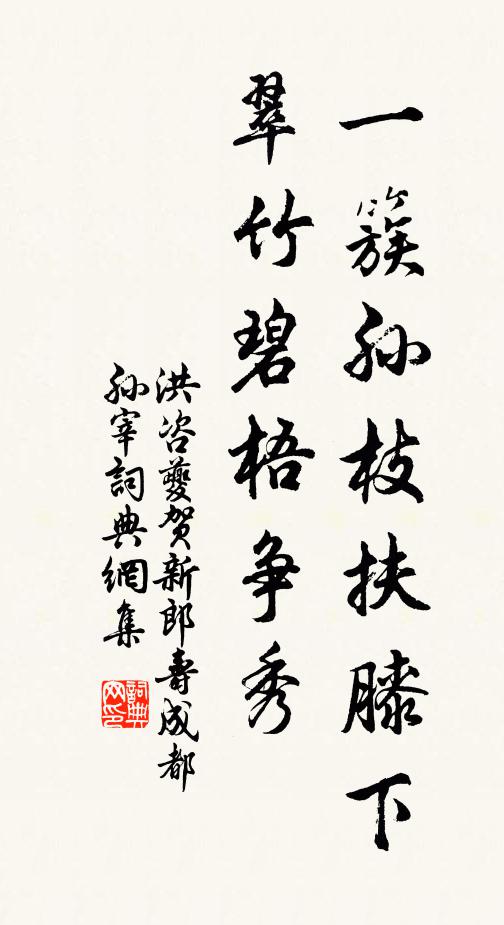 一簇孙枝扶膝下
翠竹碧梧争秀
洪咨夔贺新郎壽成都
孙宰詞典網集
詞典
网印